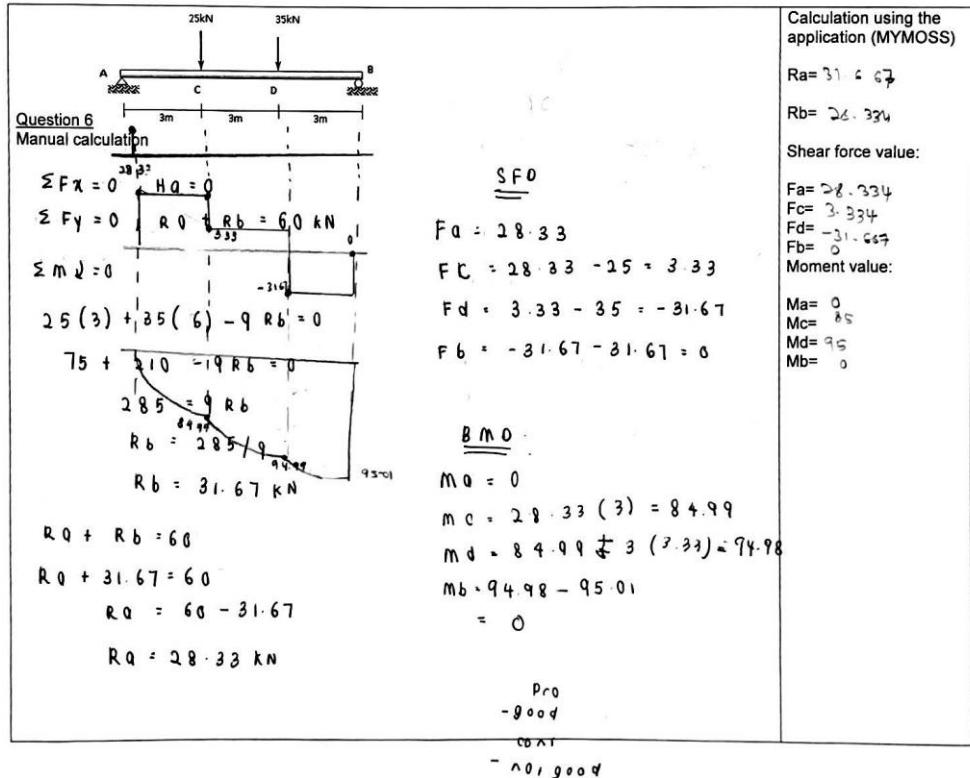 25kN 35kN
A B
C D
3m 3m 3m
Question 6
Manual calculation
28.33
ΣFx = 0 Ha = 0
ΣFy = 0 Ra + Rb = 60 kN
3.33
0
Σmd = 0
-31.67
25(3) + 35(6) - 9 Rb = 0
75 + 210 - 9 Rb = 0
285 = 9 Rb
84.99
Rb = 285/9
94.99
95.01
Rb = 31.67 kN
Ra + Rb = 60
Ra + 31.67 = 60
Ra = 60 - 31.67
Ra = 28.33 kN
SFD
Fa = 28.33
Fc = 28.33 - 25 = 3.33
Fd = 3.33 - 35 = -31.67
Fb = -31.67 - 31.67 = 0
BMD
ma = 0
mc = 28.33 (3) = 84.99
md = 84.99 + 3 (3.33) = 94.98
mb = 94.98 - 95.01
= 0
pro
- good
cont
- not good
Calculation using the
application (MYMOSS)
Ra= 31.667
Rb= 28.334
Shear force value:
Fa= 28.334
Fc= 3.334
Fd= -31.667
Fb= 0
Moment value:
Ma= 0
Mc= 85
Md= 95
Mb= 0